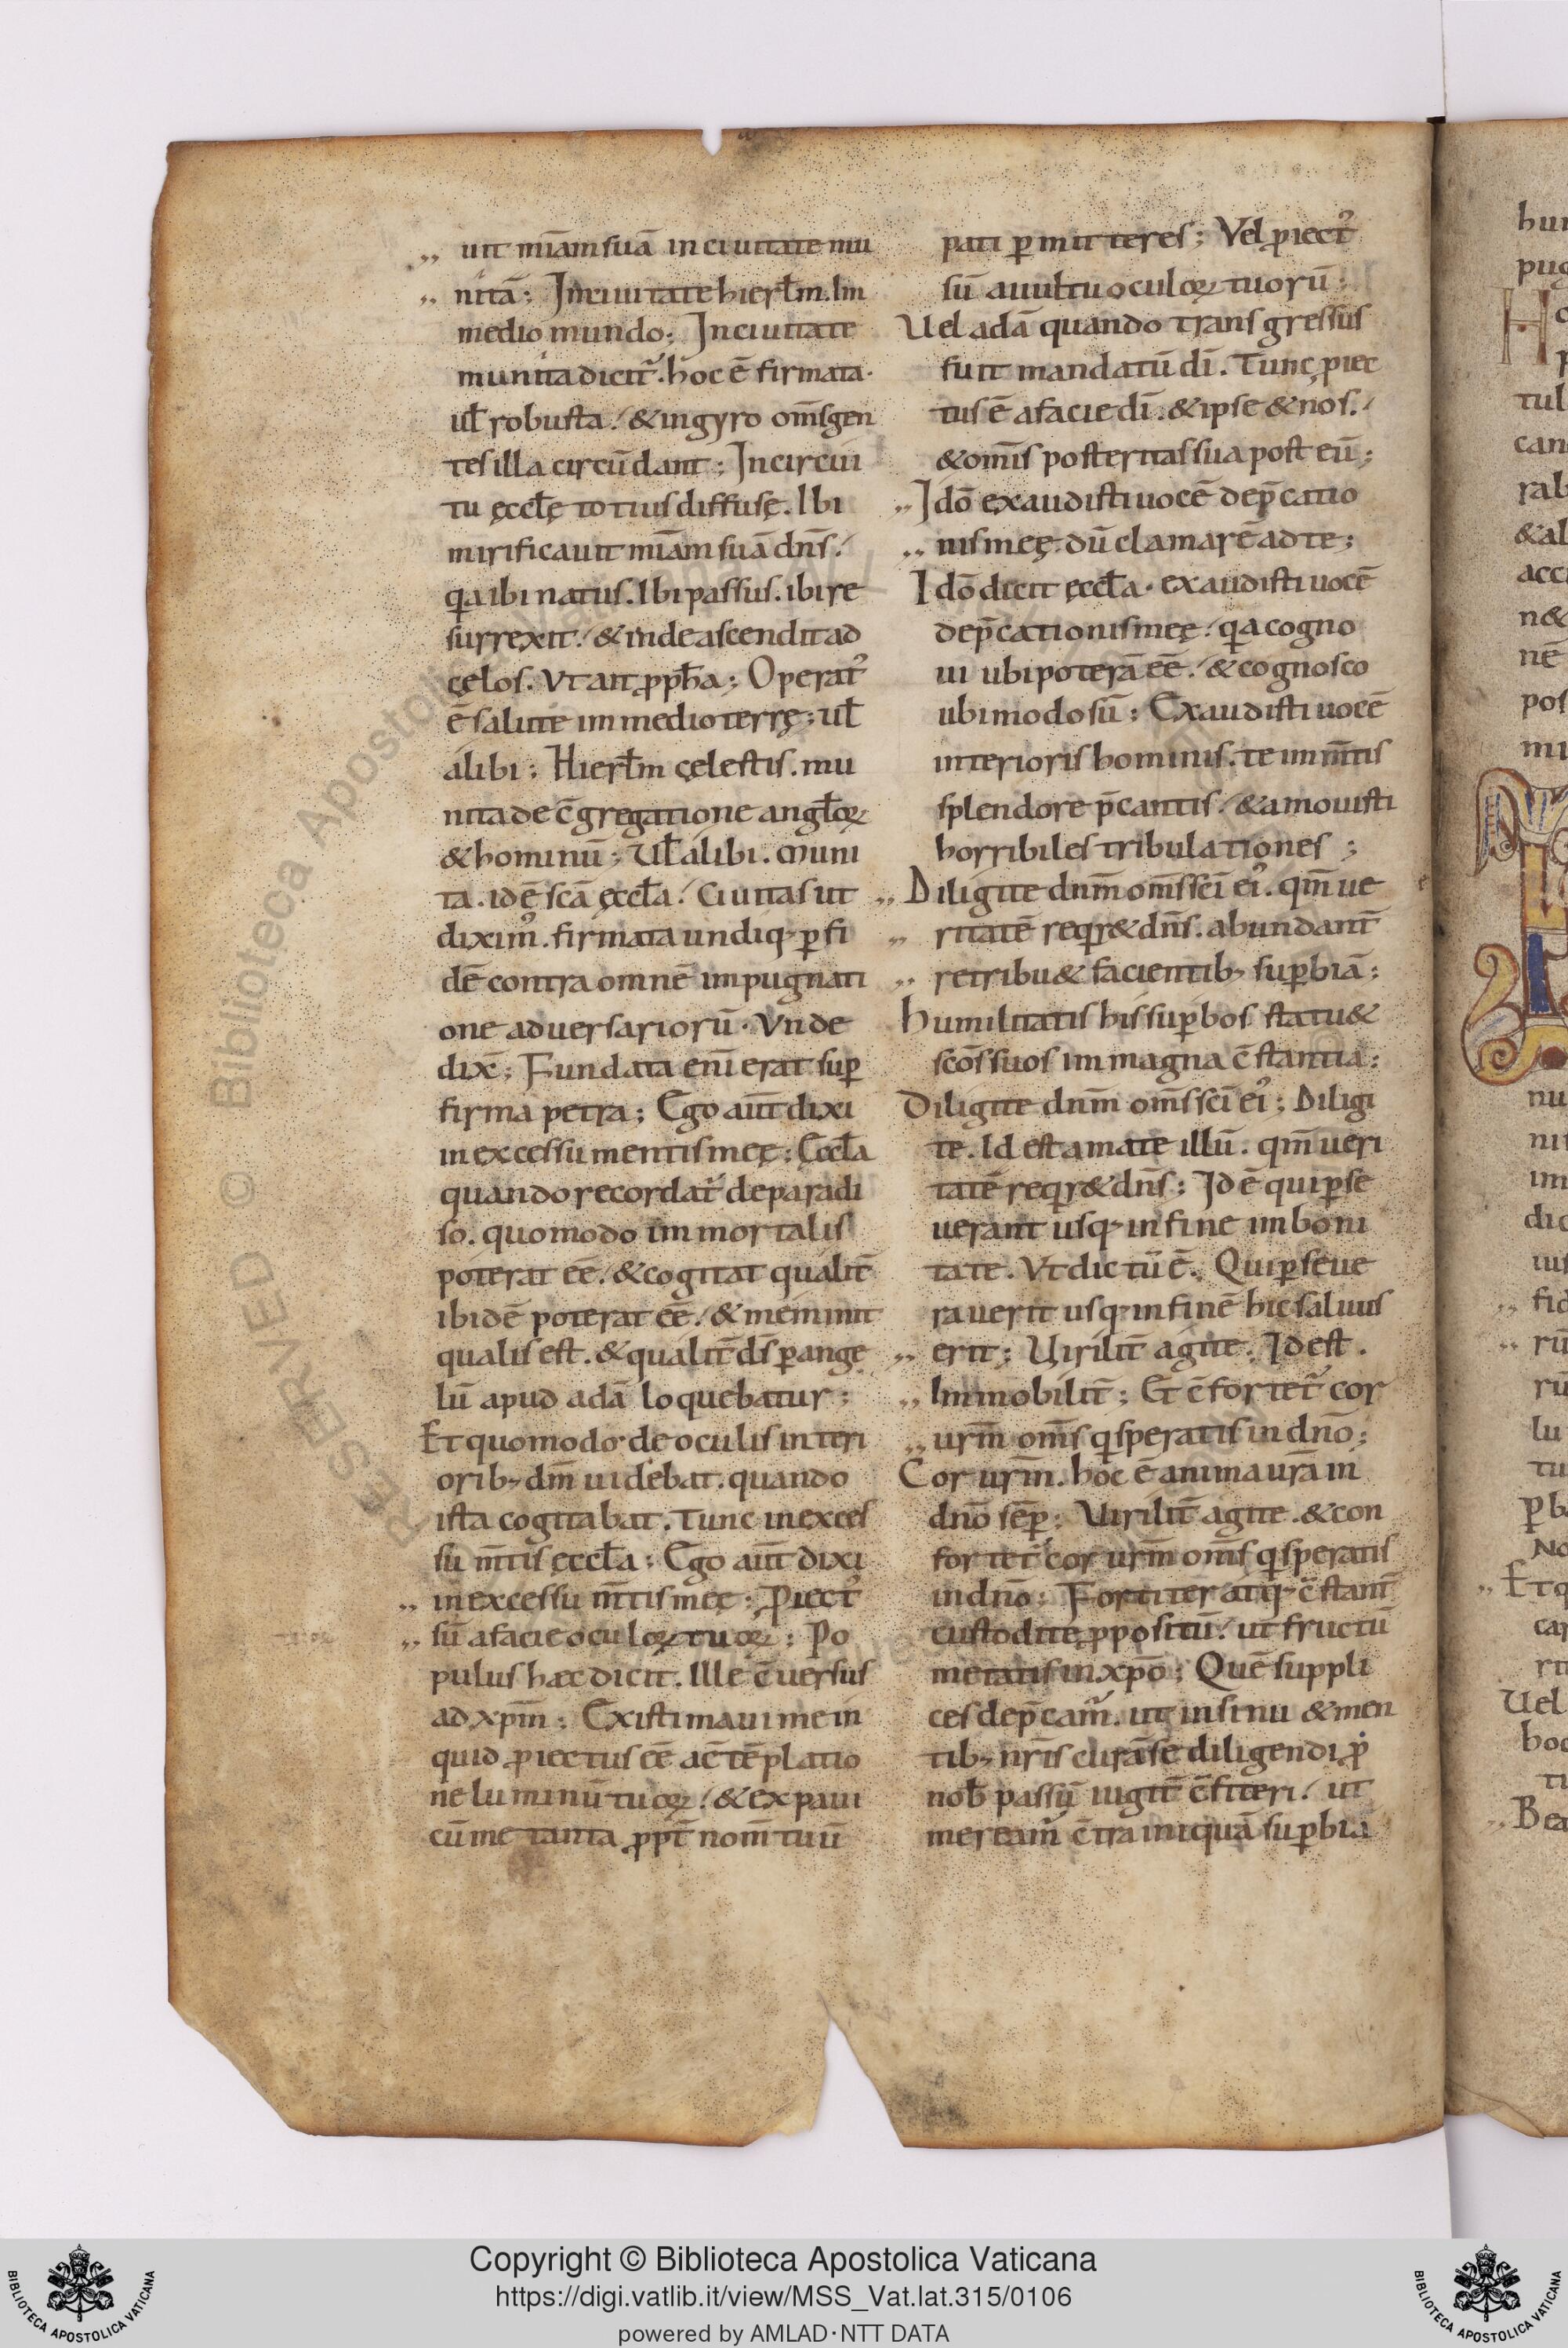 „ uit mĩam suã in ciuitate mu
„ nitã; In ciuitate hierłm. Im
medio mundo; In ciuitate
munita dicit᷑. hoc ẽ firmata.
uł robusta. & in gyro om̃s gen
tes illa circũdant; In circui
tu ęccłę totius diffusę. Ibi
mirificauit mĩam suã dñs.
q̃a ibi natus. Ibi passus. ibi re
surrexit. & inde ascendit ad
cęlos. Vt ait ꝓpħa; Operat᷒
ẽ salute im medio terrę; uł
álibi; Hierłm cęlestis. mu
nita de c̃gregatione angłoꝝ
& hominũ; Uł álibi. muni
ta. id ẽ scã ęccła. Ciuitas ut
dixim᷒. firmata undiqꝫ ꝑ fi
dẽ contra omnẽ impugnati
one aduersariorũ. Vnde
dix̃; Fundata enĩ erat suꝑ
firma petra; Ego aũt dixi
in excessu mentis meę; Ęccła
quando recordat᷑ de paradi
so. quomodo immortalis
poterat eẽ. & cogitat qualit̃
ibidẽ poterat eẽ. & meminit
qualis est. & qualit̃ ds̃ ꝑ ange
lũ apud adã loquebatur;
Et quomodo de oculis interi
oribꝫ dm̃ uidebat. quando
ista cogitabat. Tunc in exces
su m̃tis ęccła; Ego aũt dixi
„ in excessu m̃tis meę; ꝓiect᷒
„ sũ a facie oculoꝝ tuoꝝ; Po
pulus hæc dicit. Ille c̃uersus
ad xpm̃; Existimaui me in
quid ꝓiectus eẽ a c̃tẽplatio
ne luminũ tuoꝝ. & expaui
cũ me tanta ꝓpt̃ nom̃ tuũ
pati ꝑmitteres; Vel ꝓiect᷒
sũ a uultu oculoꝝ tuorũ;
Uel adã quando transgressus
fuit mandatũ dĩ. Tunc ꝓiec
tus ẽ a facie dĩ. & ipse & nos.
& om̃is posteritas sua post eũ;
„ Idõ exaudisti uocẽ dep̃catio
„ nis meę. dũ clamarẽ ad te;
Idõ dicit ęccła. exaudisti uocẽ
dep̃cationis meę. q̃a cogno
ui ubi poterã eẽ. & cognosco
ubi modo sũ; Exaudisti uocẽ
interioris hominis. te im m̃tis
splendore p̃cantis. & amouisti
horribiles tribulationes;
„ Diligite dnm̃ om̃s scĩ ei᷒. qm̃ ue
„ ritatẽ reqr& dñs. abundant̃
„ retribu& facientibꝫ suꝑbiã;
Humilitatis his suꝑbos statu&
scõs suos im magna c̃stantia;
Diligite dnm̃ om̃s scĩ ei᷒; Diligi
te. Id est amate illũ. qm̃ ueri
tatẽ reqr& dñs; Id ẽ qui ꝑse
uerant usqꝫ in fine im boni
tate. Vt dictũ ẽ. Qui ꝑseue
rauerit usqꝫ in finẽ hic saluus
„ erit; Uirilit̃ agite. Id est.
„ Immobilit̃; Et c̃fortet᷑ cor
„ urm̃ om̃s q̃ speratis in dnõ;
Cor urm̃. hoc ẽ anima urã in
dnõ sẽꝑ; Uirilit̃ agite. & con
fortet᷑ cor urm̃ om̃s q̃ speratis
in dnõ; Fortiter atqꝫ c̃stant̃
custodite ꝓpositũ. ut fructũ
metatis in xpõ; Quẽ suppli
ces dep̃cam᷑. ut in sinu & men
tibꝫ nr̃is curã se diligendi ꝓ
nob̃ passũ iugit̃ c̃fiteri. ut
mereám᷑ c̃tra iniquã suꝑbiã
Copyright © Biblioteca Apostolica Vaticana
https://digi.vatlib.it/view/MSS_Vat.lat.315/0106
powered by AMLAD·NTT DATA